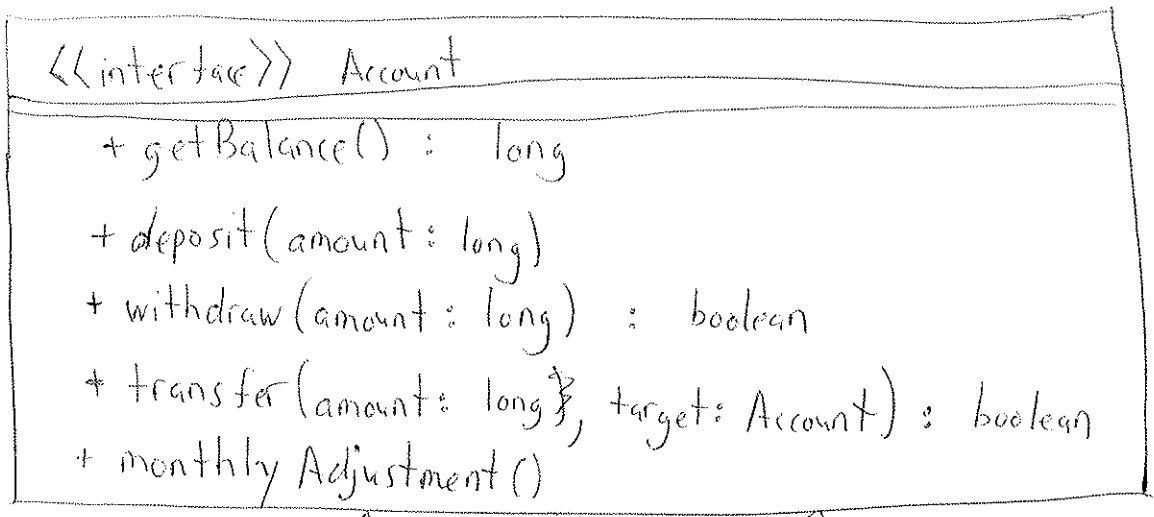 <<interface>> Account
+ getBalance() : long
+ deposit(amount: long)
+ withdraw(amount: long) : boolean
+ transfer(amount: long, target: Account) : boolean
+ monthlyAdjustment()